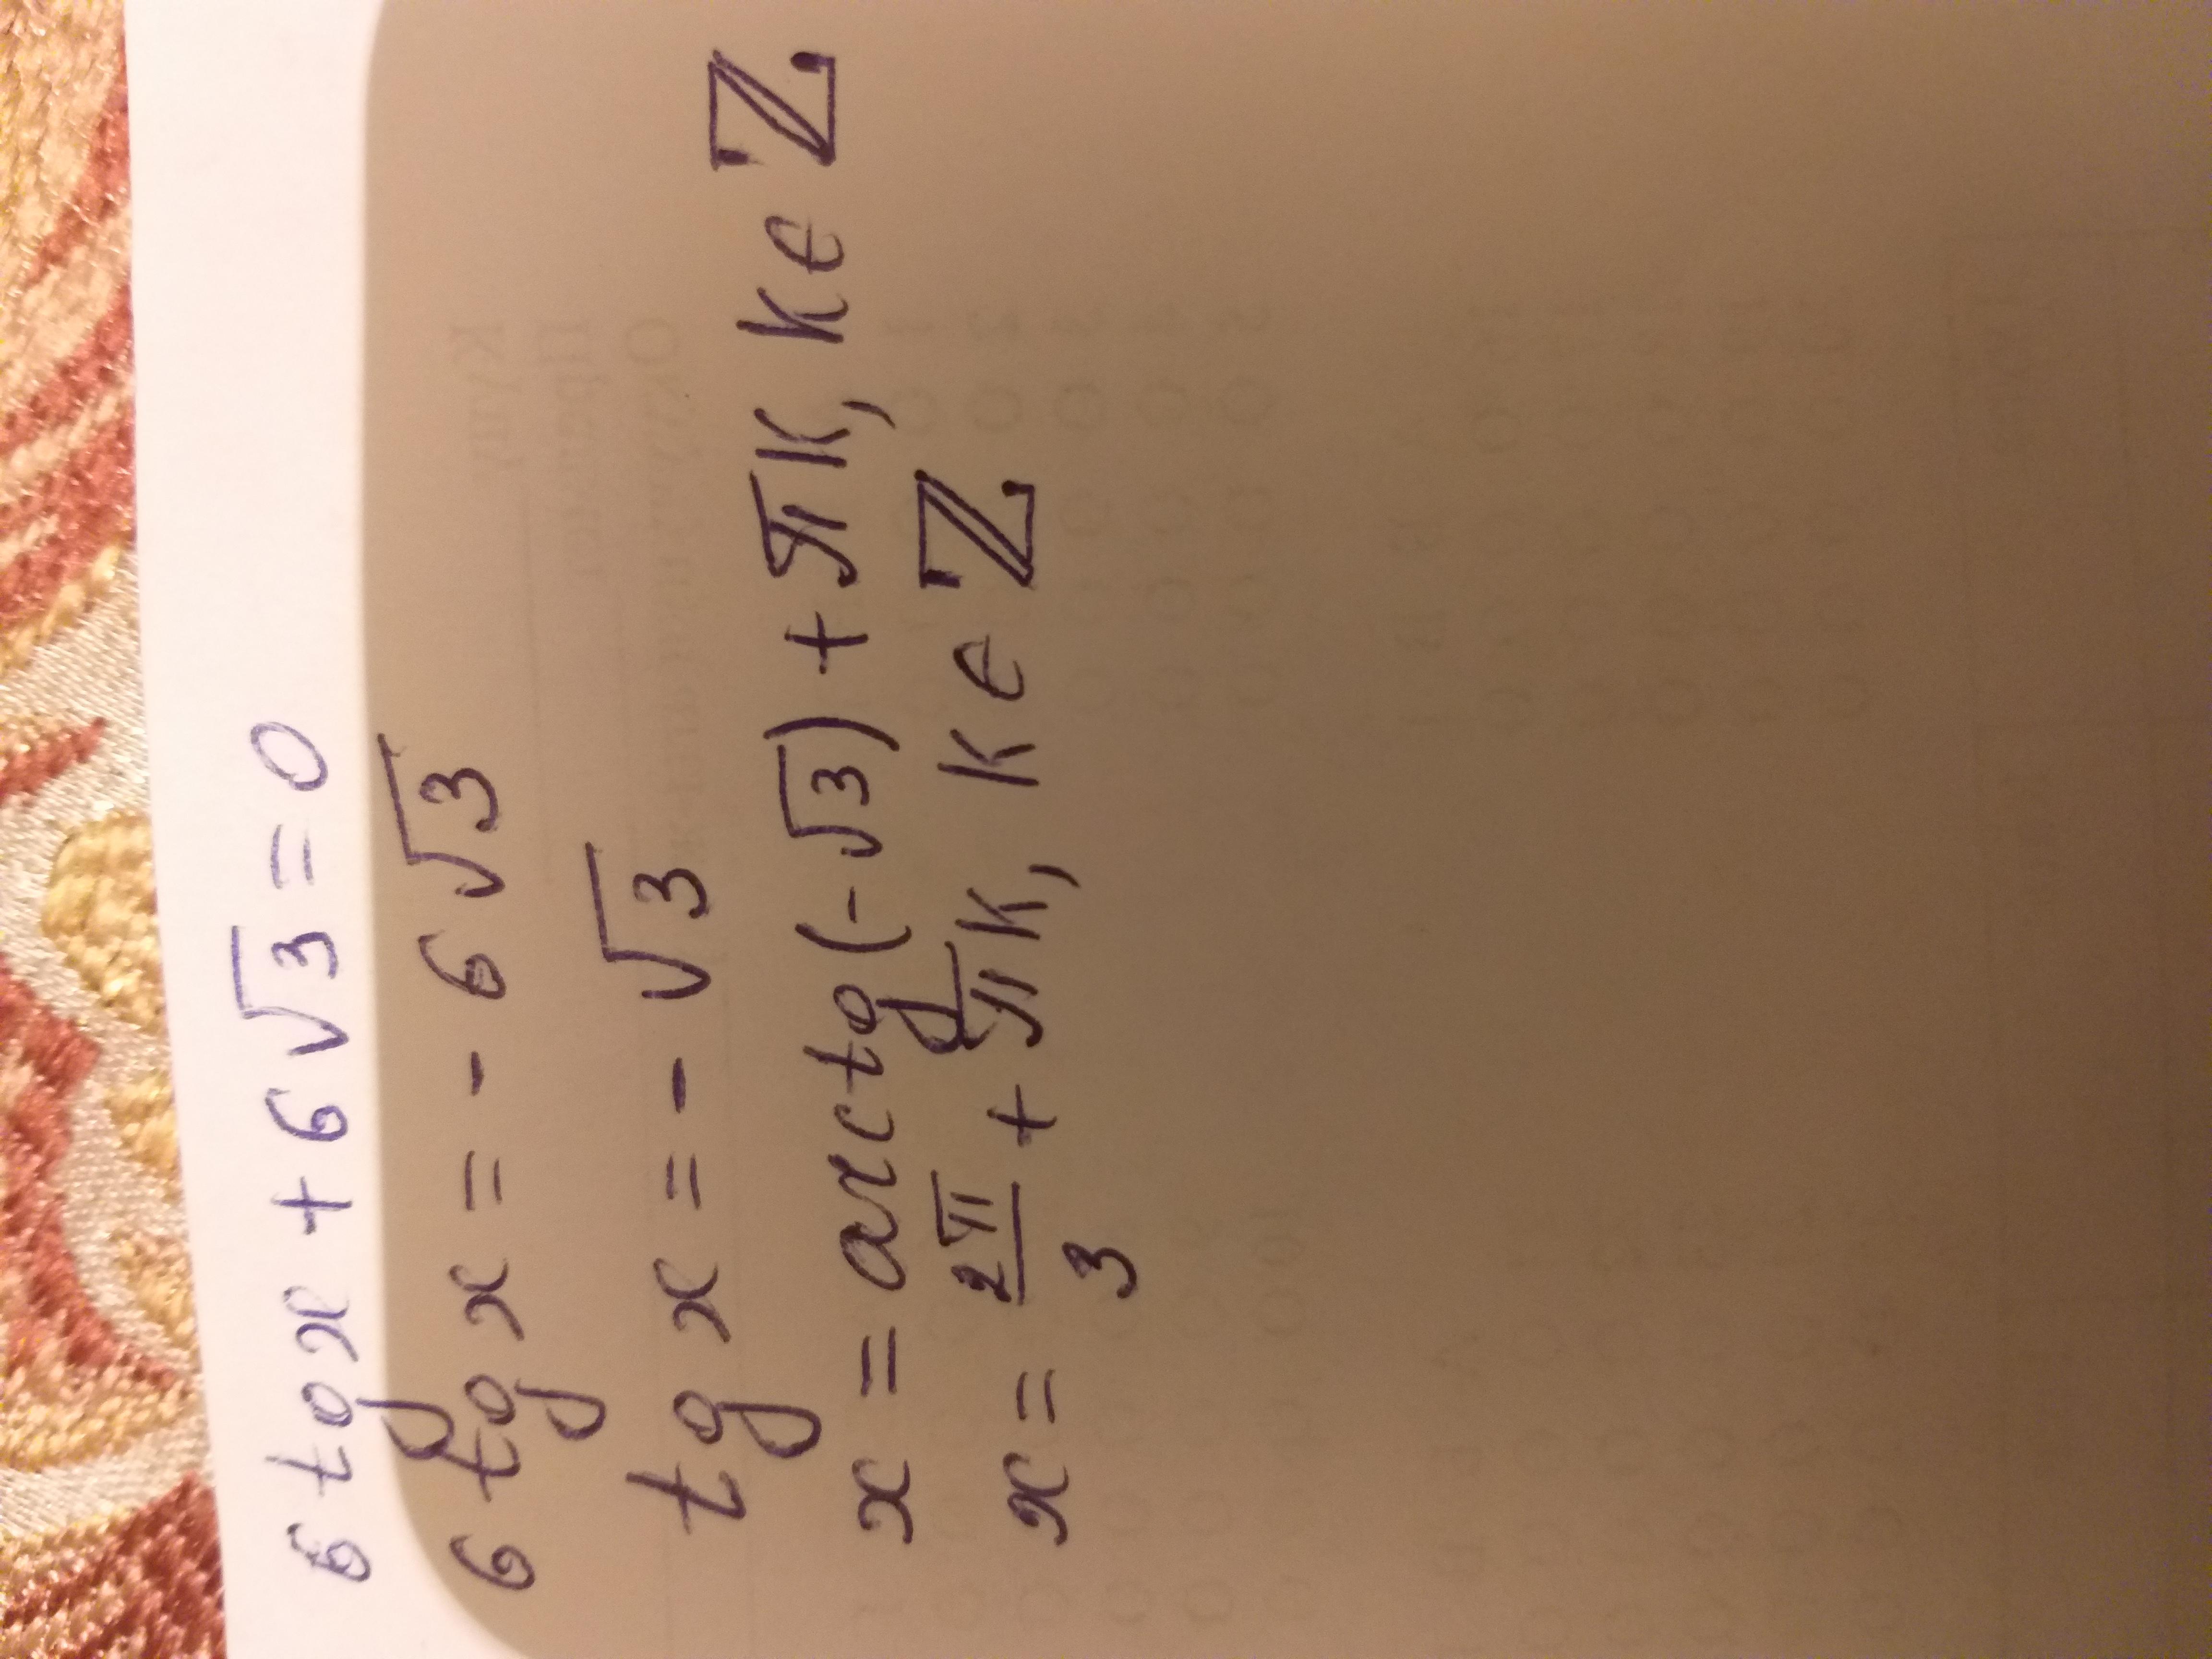 6 tg x + 6√3 = 0
6 tg x = - 6√3
tg x = - √3
x = arctg (-√3) + πk, k ∈ ℤ
x = 2π/3 + πk, k ∈ ℤ